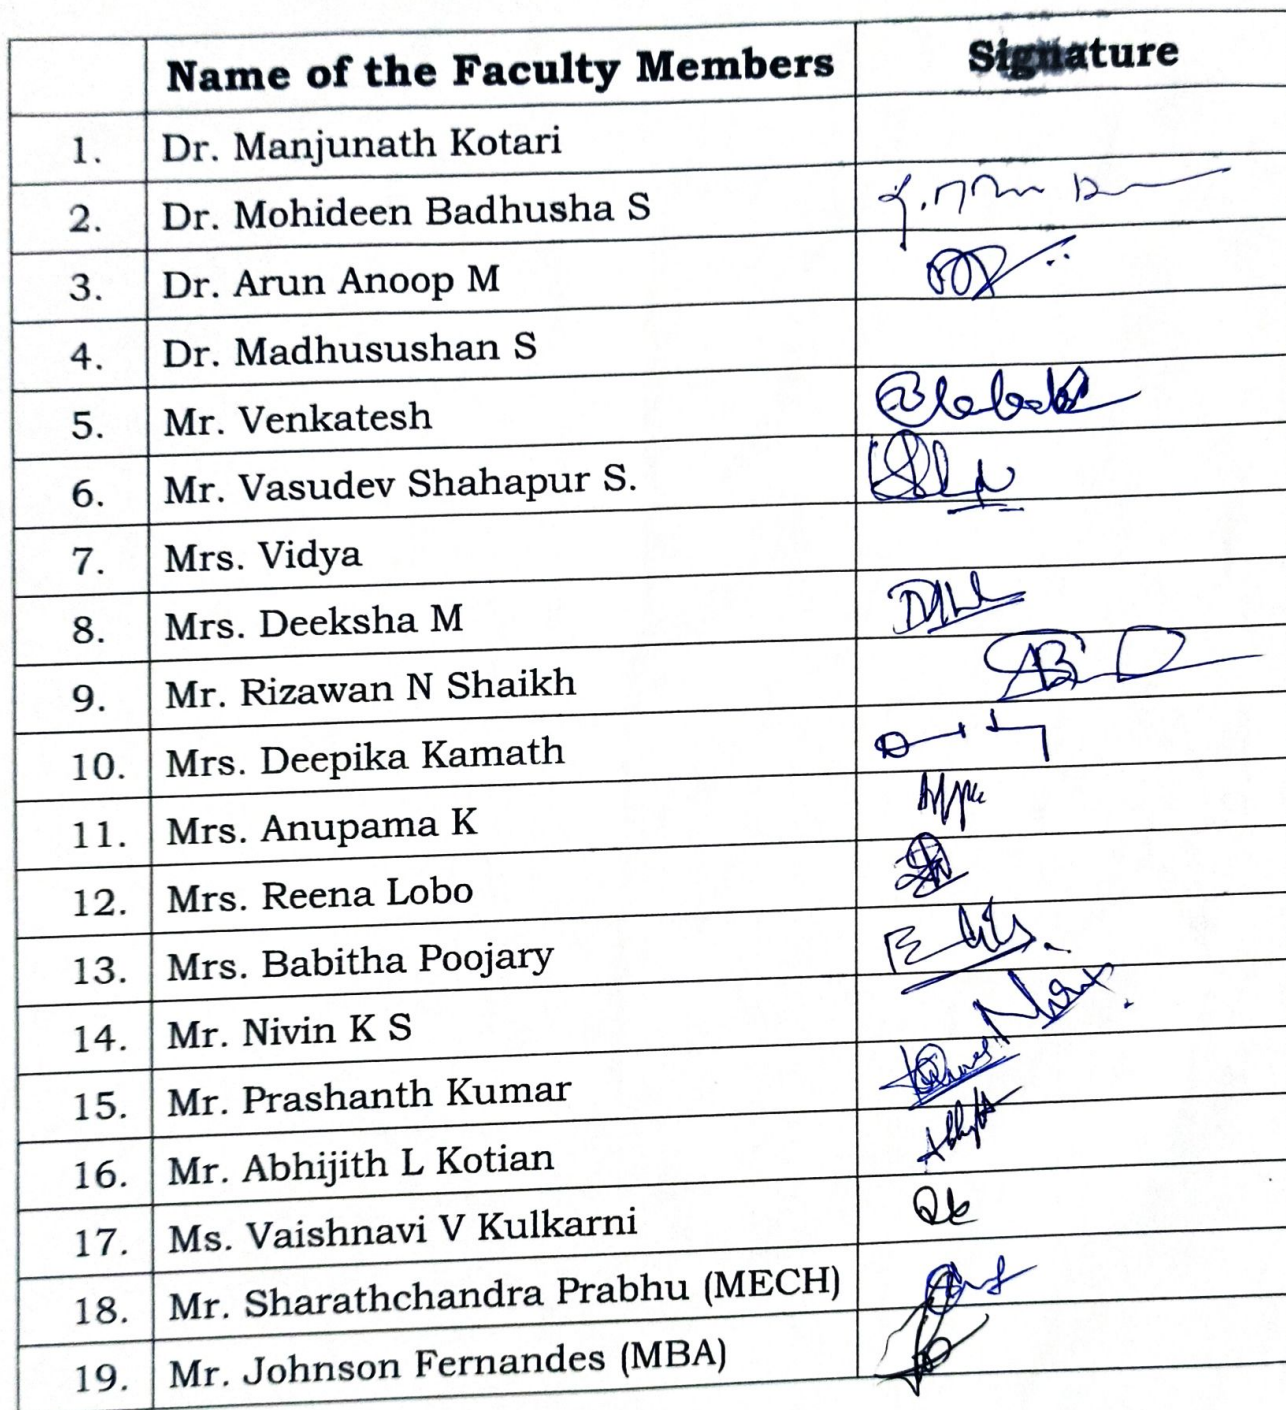 Name of the Faculty Members Signature
1. Dr. Manjunath Kotari
2. Dr. Mohideen Badhusha S
3. Dr. Arun Anoop M
4. Dr. Madhusushan S
5. Mr. Venkatesh
6. Mr. Vasudev Shahapur S.
7. Mrs. Vidya
8. Mrs. Deeksha M
9. Mr. Rizawan N Shaikh
10. Mrs. Deepika Kamath
11. Mrs. Anupama K
12. Mrs. Reena Lobo
13. Mrs. Babitha Poojary
14. Mr. Nivin K S
15. Mr. Prashanth Kumar
16. Mr. Abhijith L Kotian
17. Ms. Vaishnavi V Kulkarni
18. Mr. Sharathchandra Prabhu (MECH)
19. Mr. Johnson Fernandes (MBA)